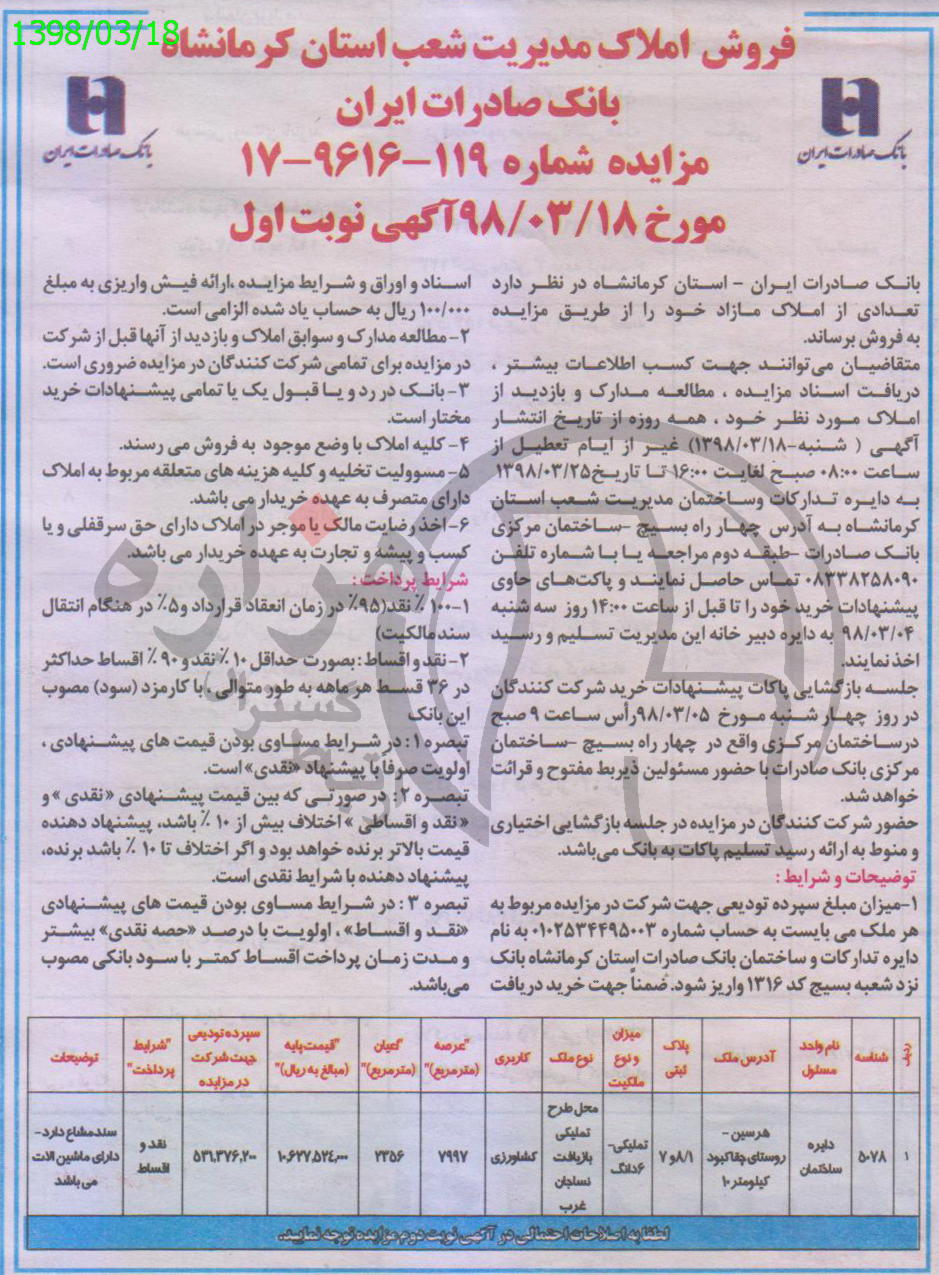 1398/03/18
فروش املاک مدیریت شعب استان کرمانشاه
بانک صادرات ایران
مزایده شماره ۱۱۹-۹۶۱۶-۱۷
مورخ ۹۸/۰۳/۱۸آگهی نوبت اول
بانک صادرات ایران
بانک صادرات ایران
بانک صادرات ایران - استان کرمانشاه در نظر دارد
تعدادی از املاک مازاد خود را از طریق مزایده
به فروش برساند.
متقاضیان می‌توانند جهت کسب اطلاعات بیشتر ،
دریافت اسناد مزایده ، مطالعه مدارک و بازدید از
املاک مورد نظر خود ، همه روزه از تاریخ انتشار
آگهی ( شنبه-۱۳۹۸/۰۳/۱۸) غیر از ایام تعطیل از
ساعت ۰۸:۰۰ صبح لغایت ۱۶:۰۰ تا تاریخ۱۳۹۸/۰۳/۲۵
به دایره تدارکات وساختمان مدیریت شعب استان
کرمانشاه به آدرس چهار راه بسیج -ساختمان مرکزی
بانک صادرات -طبقه دوم مراجعه یا با شماره تلفن
۰۸۳۳۸۲۵۸۰۹۰ تماس حاصل نمایند و پاکت‌های حاوی
پیشنهادات خرید خود را تا قبل از ساعت ۱۴:۰۰ روز سه شنبه
۹۸/۰۳/۰۴ به دایره دبیر خانه این مدیریت تسلیم و رسید
اخذ نمایند.
جلسه بازگشایی پاکات پیشنهادات خرید شرکت کنندگان
در روز چهار شنبه مورخ ۹۸/۰۳/۰۵رأس ساعت ۹ صبح
درساختمان مرکزی واقع در چهار راه بسیج -ساختمان
مرکزی بانک صادرات با حضور مسئولین ذیربط مفتوح و قرائت
خواهد شد.
حضور شرکت کنندگان در مزایده در جلسه بازگشایی اختیاری
و منوط به ارائه رسید تسلیم پاکات به بانک می‌باشد.
توضیحات و شرایط :
۱-میزان مبلغ سپرده تودیعی جهت شرکت در مزایده مربوط به
هر ملک می بایست به حساب شماره ۰۱۰۲۵۳۴۴۹۵۰۰۳ به نام
دایره تدارکات و ساختمان بانک صادرات استان کرمانشاه بانک
نزد شعبه بسیج کد ۱۳۱۶ واریز شود. ضمناً جهت خرید دریافت
اسناد و اوراق و شرایط مزایده ،ارائه فیش واریزی به مبلغ
۱۰۰/۰۰۰ ریال به حساب یاد شده الزامی است.
۲- مطالعه مدارک و سوابق املاک و بازدید از آنها قبل از شرکت
در مزایده برای تمامی شرکت کنندگان در مزایده ضروری است.
۳- بانک در رد و یا قبول یک یا تمامی پیشنهادات خرید
مختار است.
۴- کلیه املاک با وضع موجود به فروش می رسند.
۵- مسوولیت تخلیه و کلیه هزینه های متعلقه مربوط به املاک
دارای متصرف به عهده خریدار می باشد.
۶- اخذ رضایت مالک یا موجر در املاک دارای حق سرقفلی و یا
کسب و پیشه و تجارت به عهده خریدار می باشد.
شرایط پرداخت :
۱-۱۰۰ ٪ نقد(۹۵٪ در زمان انعقاد قرارداد و۵٪ در هنگام انتقال
سند مالکیت)
۲- نقد و اقساط : بصورت حداقل ۱۰ ٪ نقد و ۹۰ ٪ اقساط حداکثر
در ۳۶ قسط هر ماهه به طور متوالی ، با کارمزد (سود) مصوب
این بانک
تبصره ۱ : در شرایط مساوی بودن قیمت های پیشنهادی ،
اولویت صرفاً با پیشنهاد «نقدی» است.
تبصره ۲ : در صورتی که بین قیمت پیشنهادی « نقدی » و
« نقد و اقساطی » اختلاف بیش از ۱۰ ٪ باشد، پیشنهاد دهنده
قیمت بالاتر برنده خواهد بود و اگر اختلاف تا ۱۰ ٪ باشد برنده،
پیشنهاد دهنده با شرایط نقدی است.
تبصره ۳ : در شرایط مساوی بودن قیمت های پیشنهادی
«نقد و اقساط» ، اولویت با درصد «حصه نقدی» بیشتر
و مدت زمان پرداخت اقساط کمتر با سود بانکی مصوب
می‌باشد.
ردیف شناسه نام واحد مسئول آدرس ملک پلاک ثبتی میزان و نوع ملکیت نوع ملک کاربری "عرصه (مترمربع)" "اعیان (مترمربع)" "قیمت پایه (مبالغ به ریال)" سپرده تودیعی جهت شرکت در مزایده "شرایط پرداخت" توضیحات
۱ ۵۰۷۸ دایره ساختمان هرسین - روستای چقاکبود کیلومتر ۱۰ ۸/۱و ۷ تملیکی- ۶دانگ محل طرح تملیکی بازیافت نساجان غرب کشاورزی ۷۹۹۷ ۲۳۵۶ ۱۰,۶۲۷,۵۲۴,۰۰۰ ۵۳۱,۳۷۶,۲۰۰ نقد و اقساط سند مشاع دارد- دارای ماشین الات می باشد
لطفا به اصلاحات احتمالی در آگهی نوبت دوم مزایده توجه نمایید.